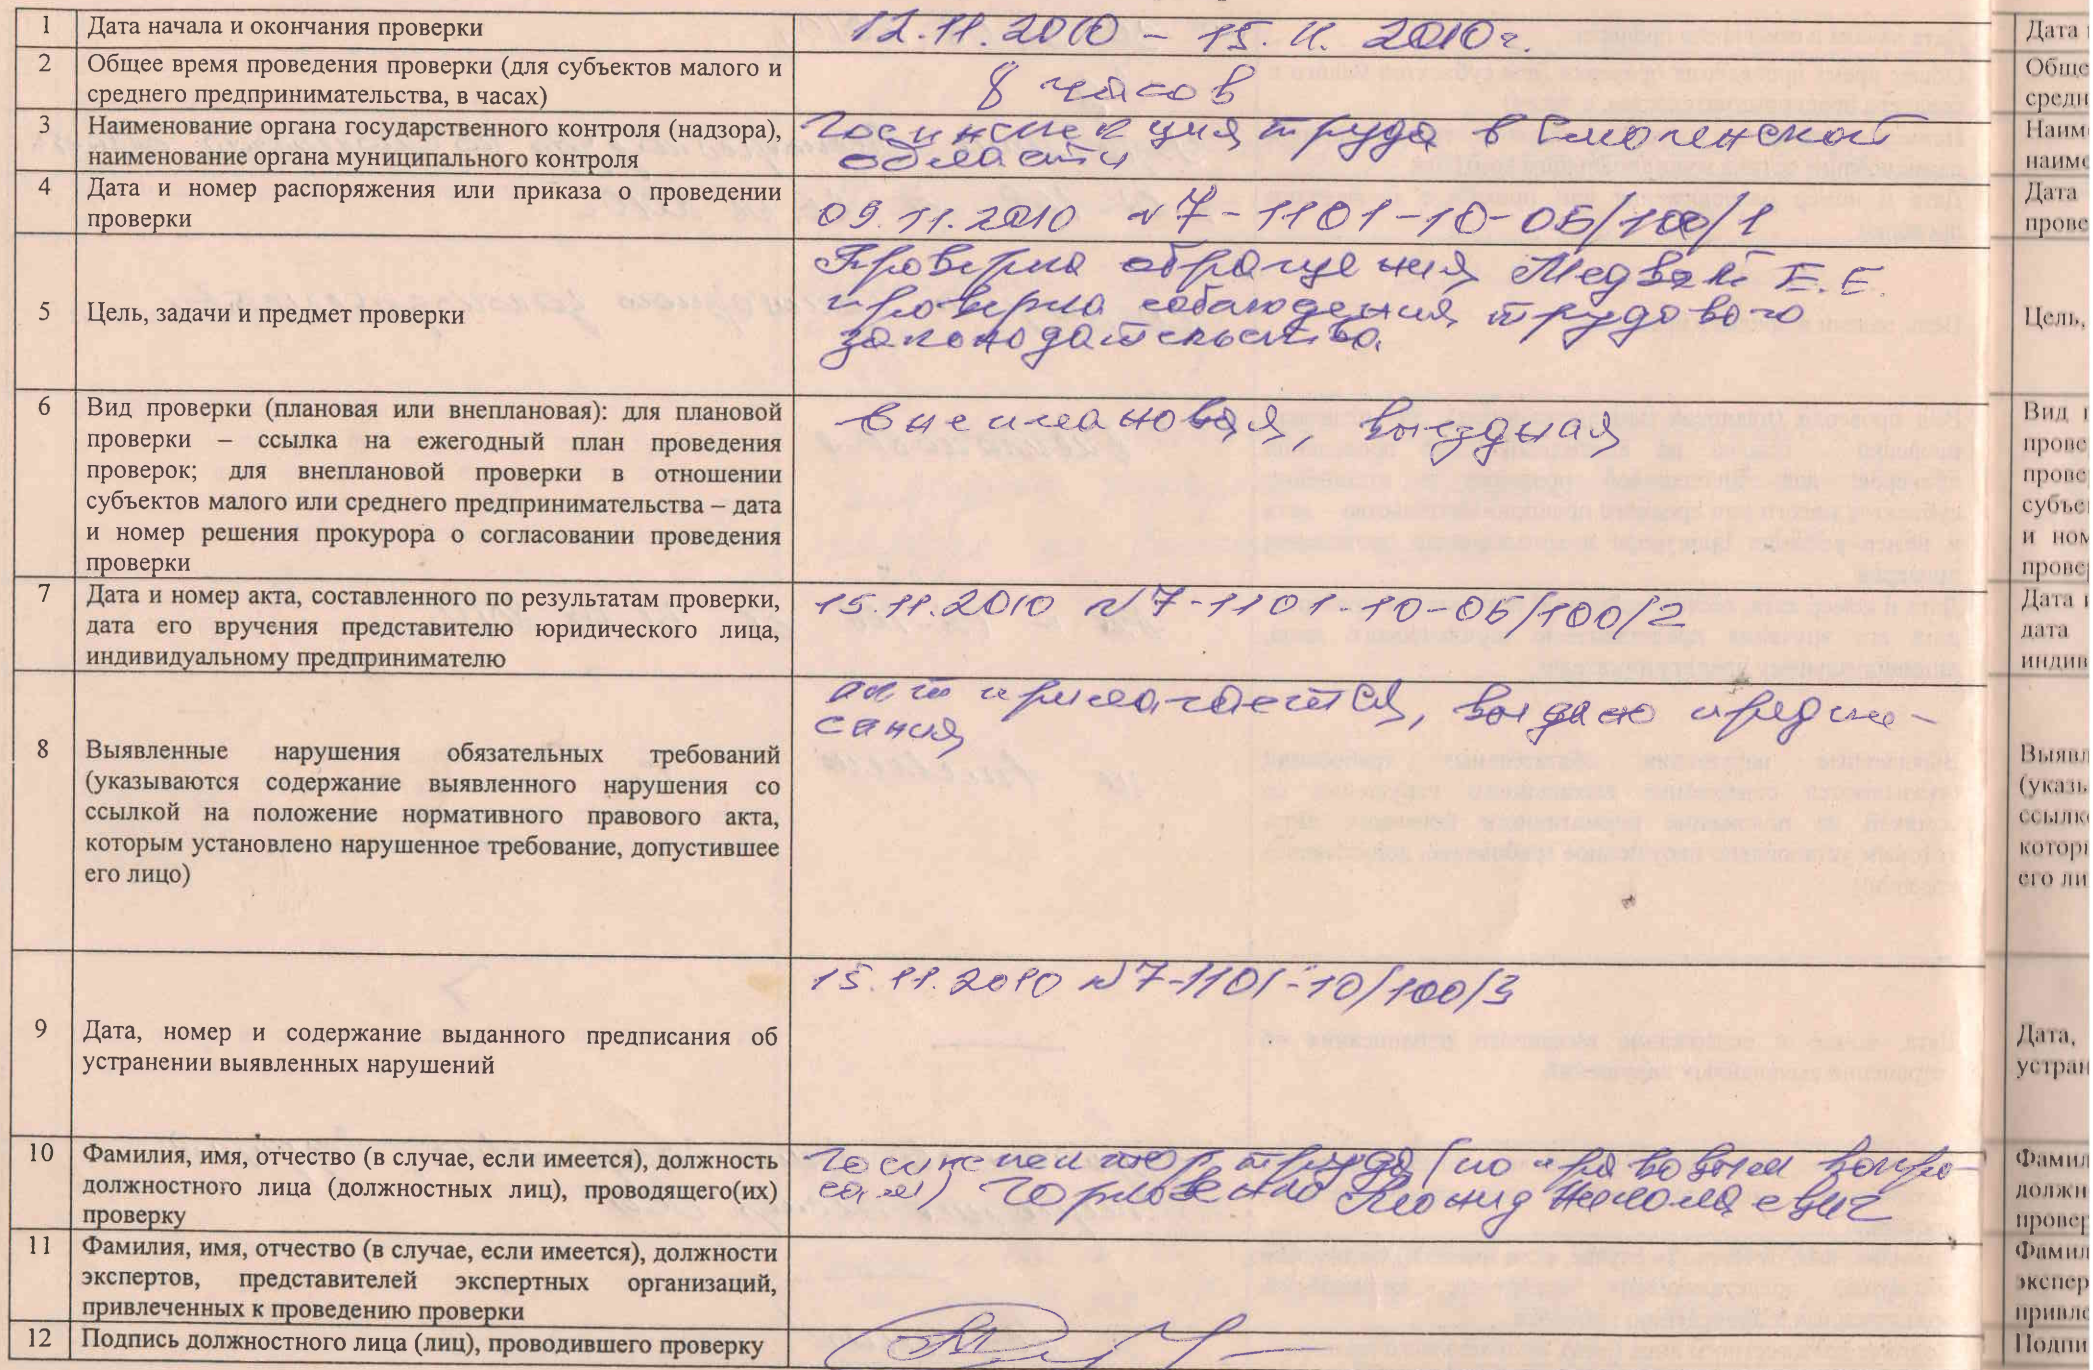 1 Дата начала и окончания проверки 12.11.2010 - 15.11.2010г.
2 Общее время проведения проверки (для субъектов малого и
среднего предпринимательства, в часах)
8 часов
3 Наименование органа государственного контроля (надзора),
наименование органа муниципального контроля
Госинспекция труда в Смоленской
области
4 Дата и номер распоряжения или приказа о проведении
проверки
09.11.2010 №7-1101-10-05/100/1
5 Цель, задачи и предмет проверки
Проверка обращения Е.Е.
проверка соблюдения трудового
законодательства
6 Вид проверки (плановая или внеплановая): для плановой
проверки – ссылка на ежегодный план проведения
проверок; для внеплановой проверки в отношении
субъектов малого или среднего предпринимательства – дата
и номер решения прокурора о согласовании проведения
проверки
внеплановая, выездная
7 Дата и номер акта, составленного по результатам проверки,
дата его вручения представителю юридического лица,
индивидуальному предпринимателю
15.11.2010 №7-1101-10-05/100/2
8 Выявленные нарушения обязательных требований
(указываются содержание выявленного нарушения со
ссылкой на положение нормативного правового акта,
которым установлено нарушенное требование, допустившее
его лицо)
акт прилагается, выдано предпи-
сания
9 Дата, номер и содержание выданного предписания об
устранении выявленных нарушений
15.11.2010 №7-1101-10/100/3
10 Фамилия, имя, отчество (в случае, если имеется), должность
должностного лица (должностных лиц), проводящего(их)
проверку
Госинспектор труда (по правовым вопро-
сам) Леонид Николаевич
11 Фамилия, имя, отчество (в случае, если имеется), должности
экспертов, представителей экспертных организаций,
привлеченных к проведению проверки
12 Подпись должностного лица (лиц), проводившего проверку
Дата
Обще
средн
Наиме
наиме
Дата
прове
Цель,
Вид
прове
провер
субъе
и ном
провер
Дата
дата
индив
Выявл
(указы
ссылк
котор
его ли
Дата,
устран
Фамил
должн
провер
Фамил
экспер
привле
Подпи